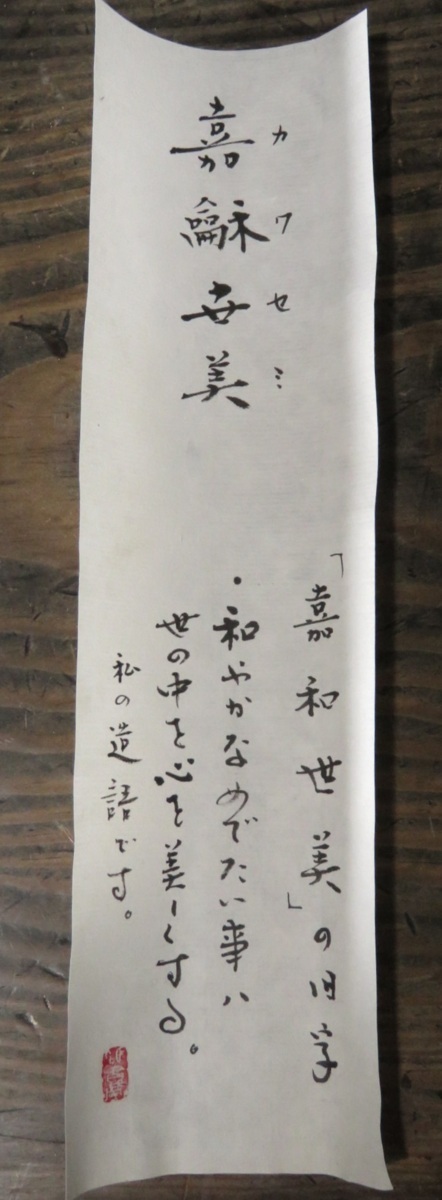 嘉龢世美
カワセミ
「嘉和世美」の旧字
・和やかなめでたい事ハ
世の中を心を美しくする。
私の造語です。